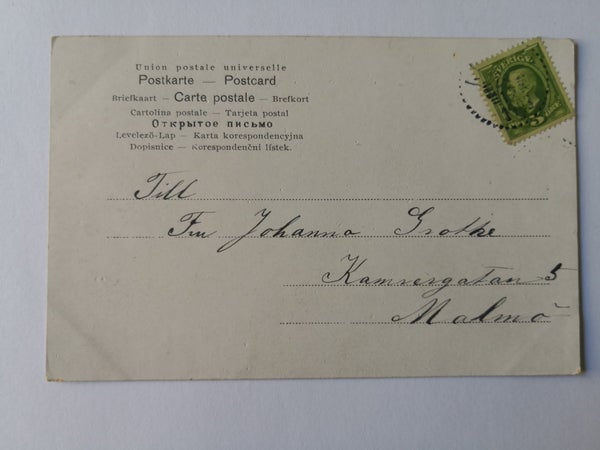 Union postale universelle
Postkarte — Postcard
Briefkaart — Carte postale — Brefkort
Cartolina postale — Tarjeta postal
Открытое письмо
Levelező-Lap — Karta korespondencyjna
Dopisnice — Korespondenční lístek.
SVERIGE
5
Till
Fru Johanna Grothe
Kamrergatan 5
Malmö